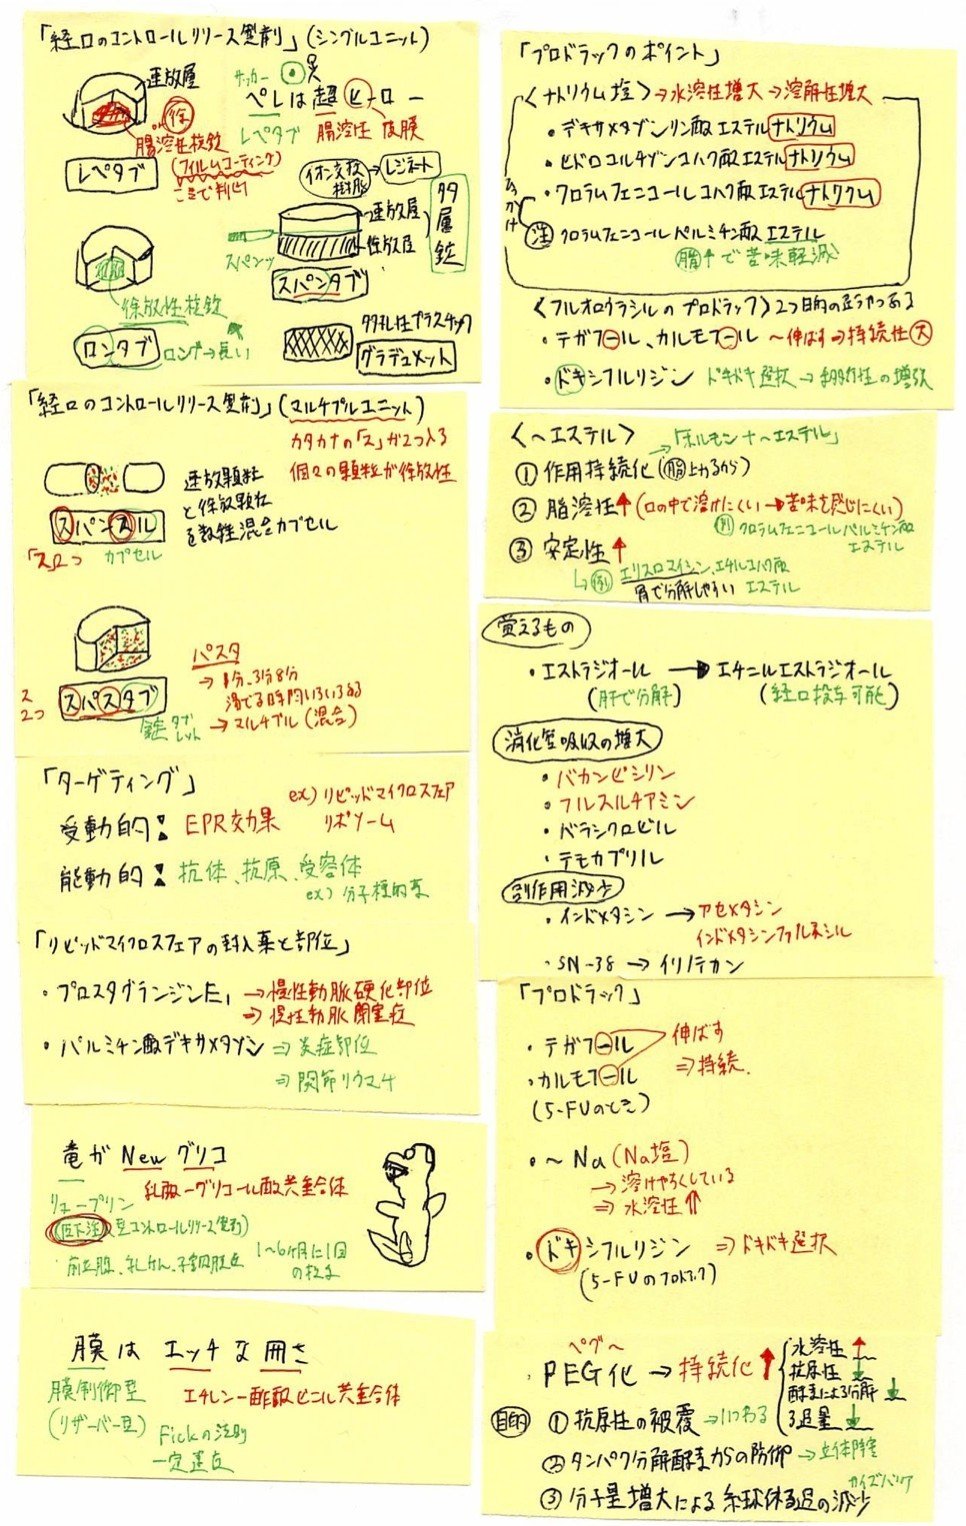 「経口のコントロールリリース製剤」(シングルユニット)
速放層
徐
腸溶性核錠
(フィルムコーティング)
ここで判断
レペタブ
サッカー
ペレは超ヒーロー
レペタブ 腸溶性 皮膜
イオン交換樹脂→レジネート
速放層
徐放層
多層錠
スパンッ
スパンタブ
徐放性核錠
ロンタブ
ロング→長い
多孔性プラスチック
グラデュメット
「経口のコントロールリリース製剤」(マルチプルユニット)
カタカナの「ス」が2つ入る
個々の顆粒が徐放性
速放顆粒
と徐放顆粒
を数種混合カプセル
スパンスル
「ス」2つ カプセル
パスタ
→1分、3分、8分
湯でる時間いろいろある
→マルチプル(混合)
スパスタブ
ス2つ
錠 タブレット
「ターゲティング」
受動的: EPR効果
ex) リピッドマイクロスフェア
リポソーム
能動的: 抗体、抗原、受容体
ex) 分子標的薬
「リピッドマイクロスフェアの封入薬と部位」
・プロスタグランジンE₁ →慢性動脈硬化部位
⇒慢性動脈閉塞症
・パルミチン酸デキサメタゾン ⇒炎症部位
⇒関節リウマチ
竜が New グリコ
リュープリン 乳酸-グリコール酸共重合体
(皮下注)型コントロールリリース製剤)
前立腺、乳がん、子宮内膜症
1~6ヶ月に1回の投与
膜は エッチな 囲さ
膜制御型 エチレン-酢酸ビニル共重合体
(リザーバー型)
Fickの法則
一定速度
「プロドラックのポイント」
〈ナトリウム塩〉→水溶性増大→溶解性増大
・デキサメタゾンリン酸エステルナトリウム
・ヒドロコルチゾンコハク酸エステルナトリウム
・クロラムフェニコールコハク酸エステルナトリウム
ひっかけ
注 クロラムフェニコールパルミチン酸エステル
脂↑で苦味軽減
〈フルオロウラシルのプロドラック〉2つ目的の違うやつある
・テガフール、カルモフール ~伸ばす⇒持続性大
・ドキシフルリジン ドキドキ選択→選択性の増強
〈~エステル〉
→「ホルモン+~エステル」
① 作用持続化(脂上がるから)
② 脂溶性↑(口の中で溶けにくい→苦味を感じにくい)
例 クロラムフェニコールパルミチン酸
エステル
③ 安定性↑
↳例 エリスロマイシン、エチルコハク酸
胃で分解しやすい エステル
覚えるもの
・エストラジオール → エチニルエストラジオール
(肝で分解) (経口投与可能)
消化管吸収の増大
・バカンピシリン
・フルスルチアミン
・バラシクロビル
・テモカプリル
副作用減少
・インドメタシン→アセメタシン
インドメタシンファルネシル
・SN-38→イリノテカン
「プロドラック」
・テガフール
・カルモフール
伸ばす
⇒持続
(5-FUのとき)
・~Na (Na塩)
→溶けやすくしている
⇒水溶性↑
・ドキシフルリジン ⇒ドキドキ選択
(5-FUのプロドラック)
ペグ~
・PEG化→持続化↑
水溶性↑
抗原性↓
酵素による分解↓
ろ過量↓
目的 ① 抗原性の被覆→いつわる
② タンパク分解酵素からの防御→立体障害
③ 分子量増大による糸球体ろ過の減少
サイズバリア